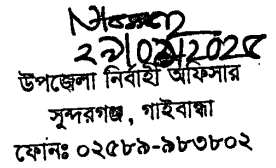 ২৯/০৪/2025
উপজেলা নির্বাহী অফিসার
সুন্দরগঞ্জ, গাইবান্ধা
ফোনঃ ০২৫৮৯-৯৮৩৮০২